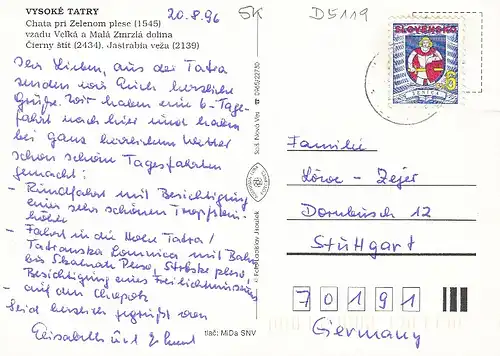 VYSOKÉ TATRY
Chata pri Zelenom plese (1545)
vzadu Veľká a Malá Zmrzlá dolina
Čierny štít (2434). Jastrabia veža (2139)
20.8.96
SK
D5119
SLOVENSKO
SENICA
Ihr Lieben, aus der Tatra
senden wir Euch herzliche
Grüße. Wir haben eine 6-Tage-
fahrt nach hier und haben
bei ganz herrlichem Wetter
schon schöne Tagesfahrten
gemacht:
- Rundfahrt mit Besichtigung
einer sehr schönen Tropfstein-
höhle
- Fahrt in die Hohe Tatra/
Tatranska Lomnica mit Bahn
bis Pleso, Strbske pleso,
Besichtigung eines Freilichtmuseums
- auf den
Seid herzlich gegrüßt von
Elisabeth und
tlač: MiDa SNV
Familie
Löwe - Zejer
Dornbusch 12
Stuttgart
70191
Germany